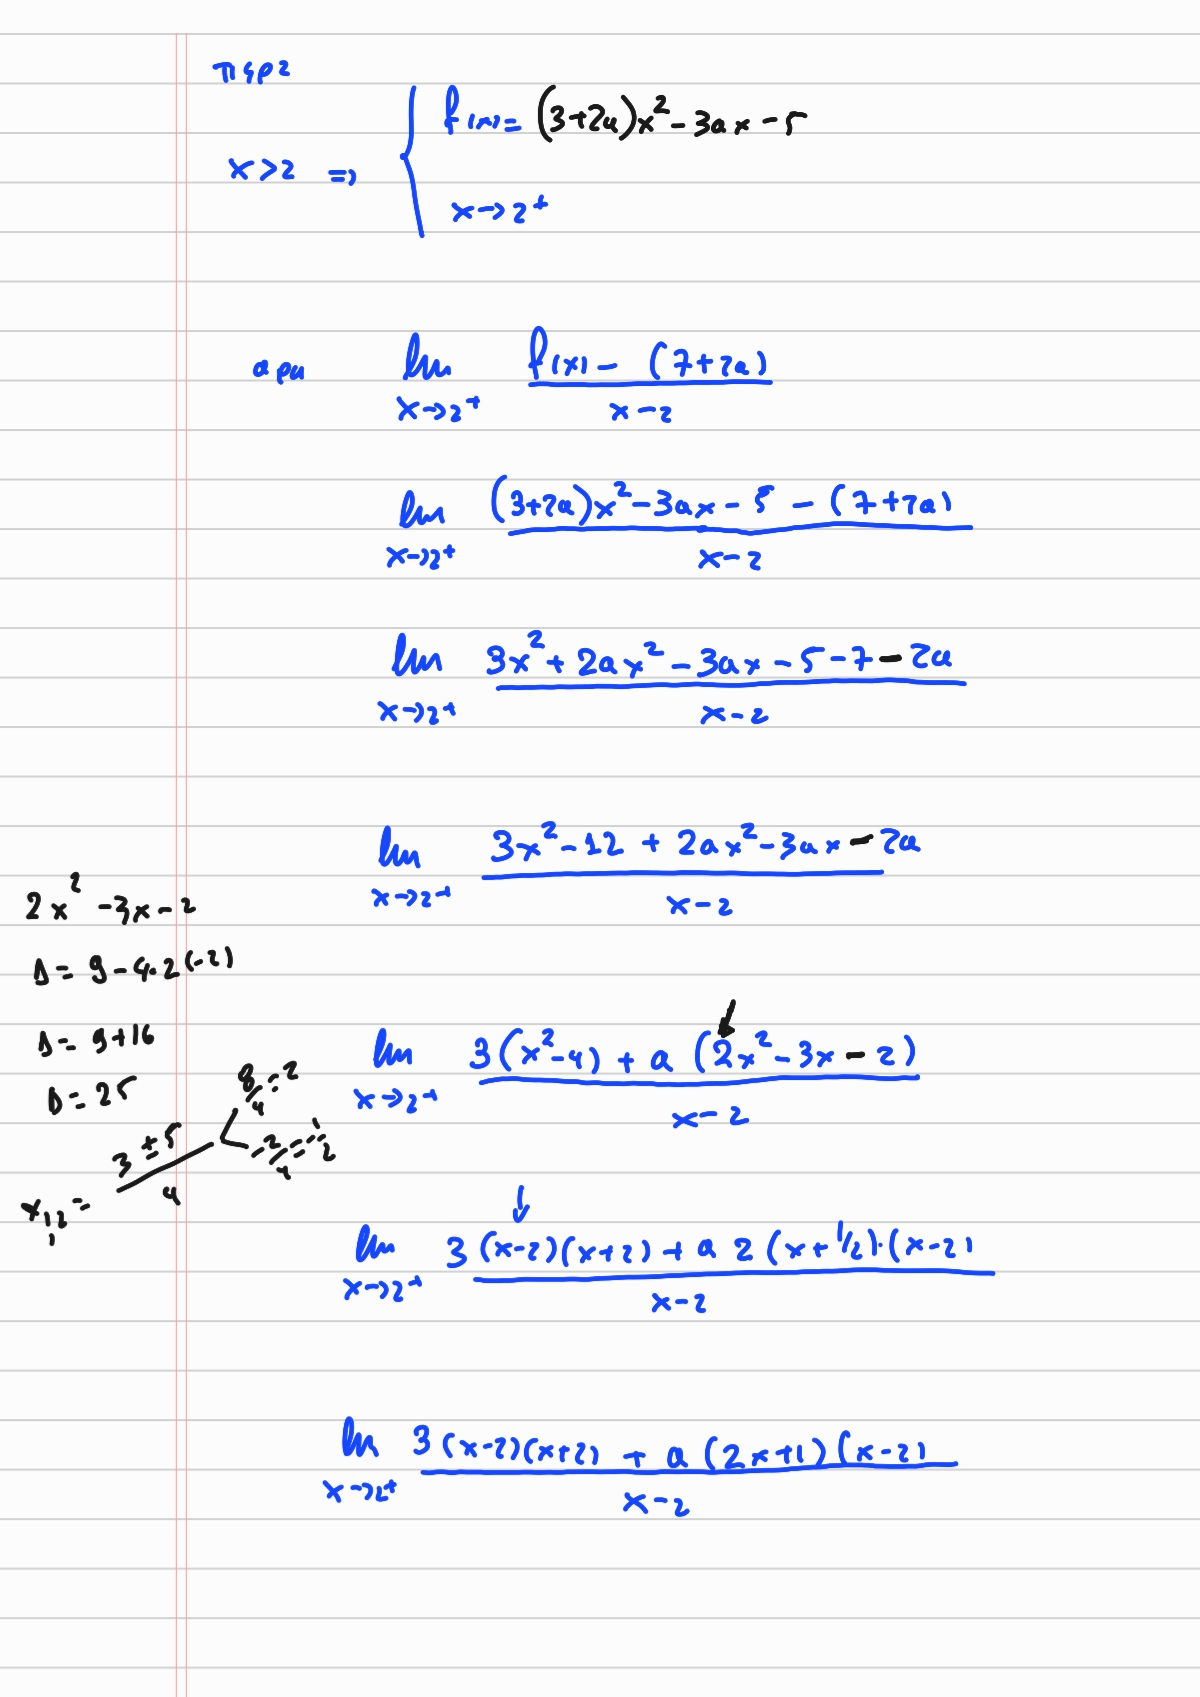 περ 2
f(x) = (3+2a)x² - 3ax - 5
x > 2 ⇒
x → 2⁺
αρα lim f(x) - (7+2a)
x→2⁺ x-2
lim (3+2a)x² - 3ax - 5 - (7+2a)
x→2⁺ x-2
lim 3x² + 2ax² - 3ax - 5 - 7 - 2a
x→2⁺ x-2
lim 3x² - 12 + 2ax² - 3ax - 2a
x→2⁺ x-2
2x² - 3x - 2
Δ = 9 - 4·2(-2)
Δ = 9 + 16
Δ = 25
x₁,₂ = 3 ± 5 / 4
8/4 = 2
-2/4 = -1/2
lim 3(x² - 4) + a(2x² - 3x - 2)
x→2⁺ x-2
lim 3(x-2)(x+2) + a 2(x+1/2)·(x-2)
x→2⁺ x-2
lim 3(x-2)(x+2) + a(2x+1)(x-2)
x→2⁺ x-2